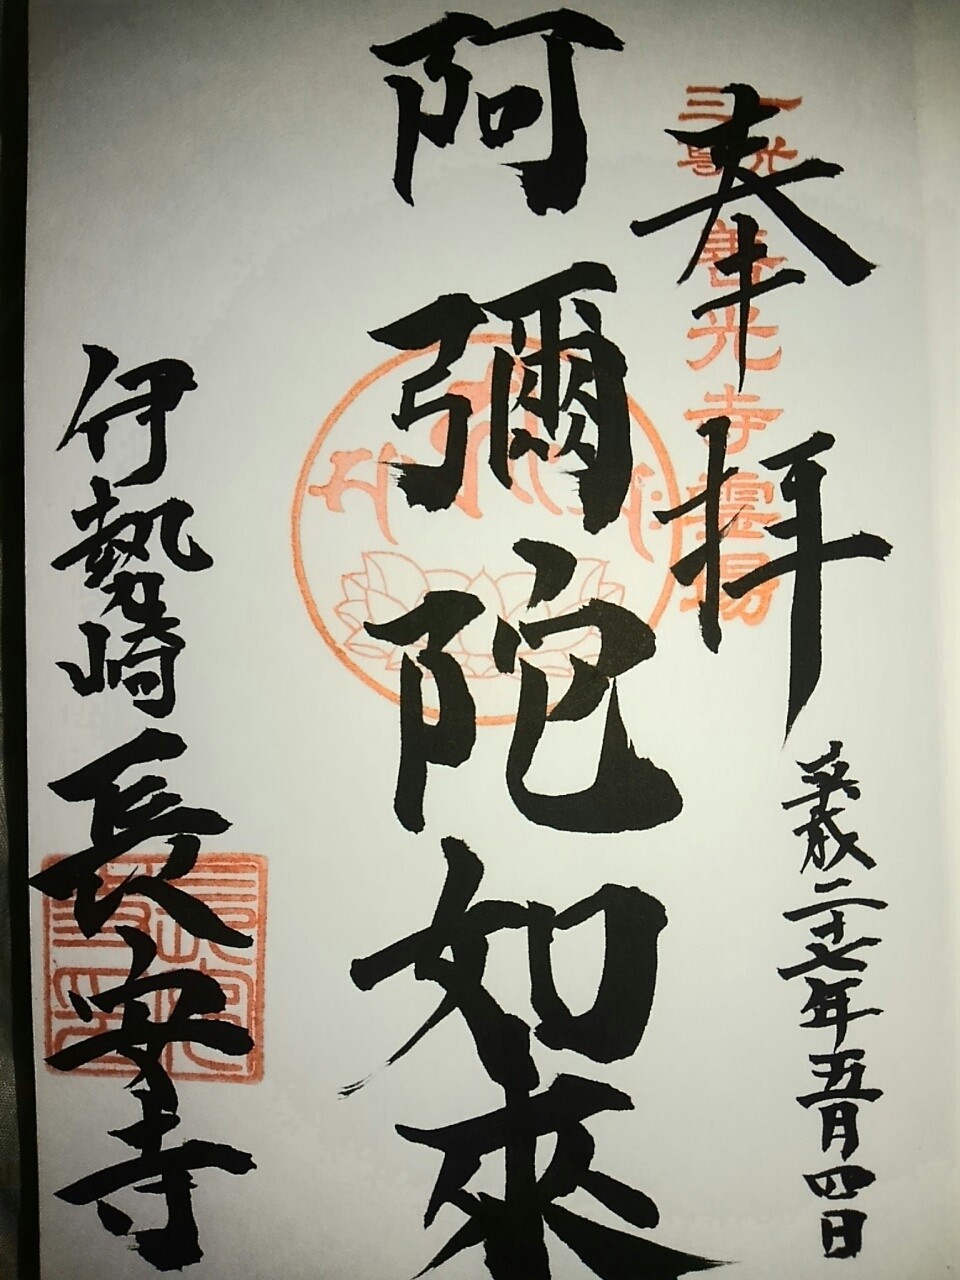 奉拝
平成二十七年五月四日
一光
三尊
善光寺霊場
阿彌陀如來
伊勢崎
長安寺